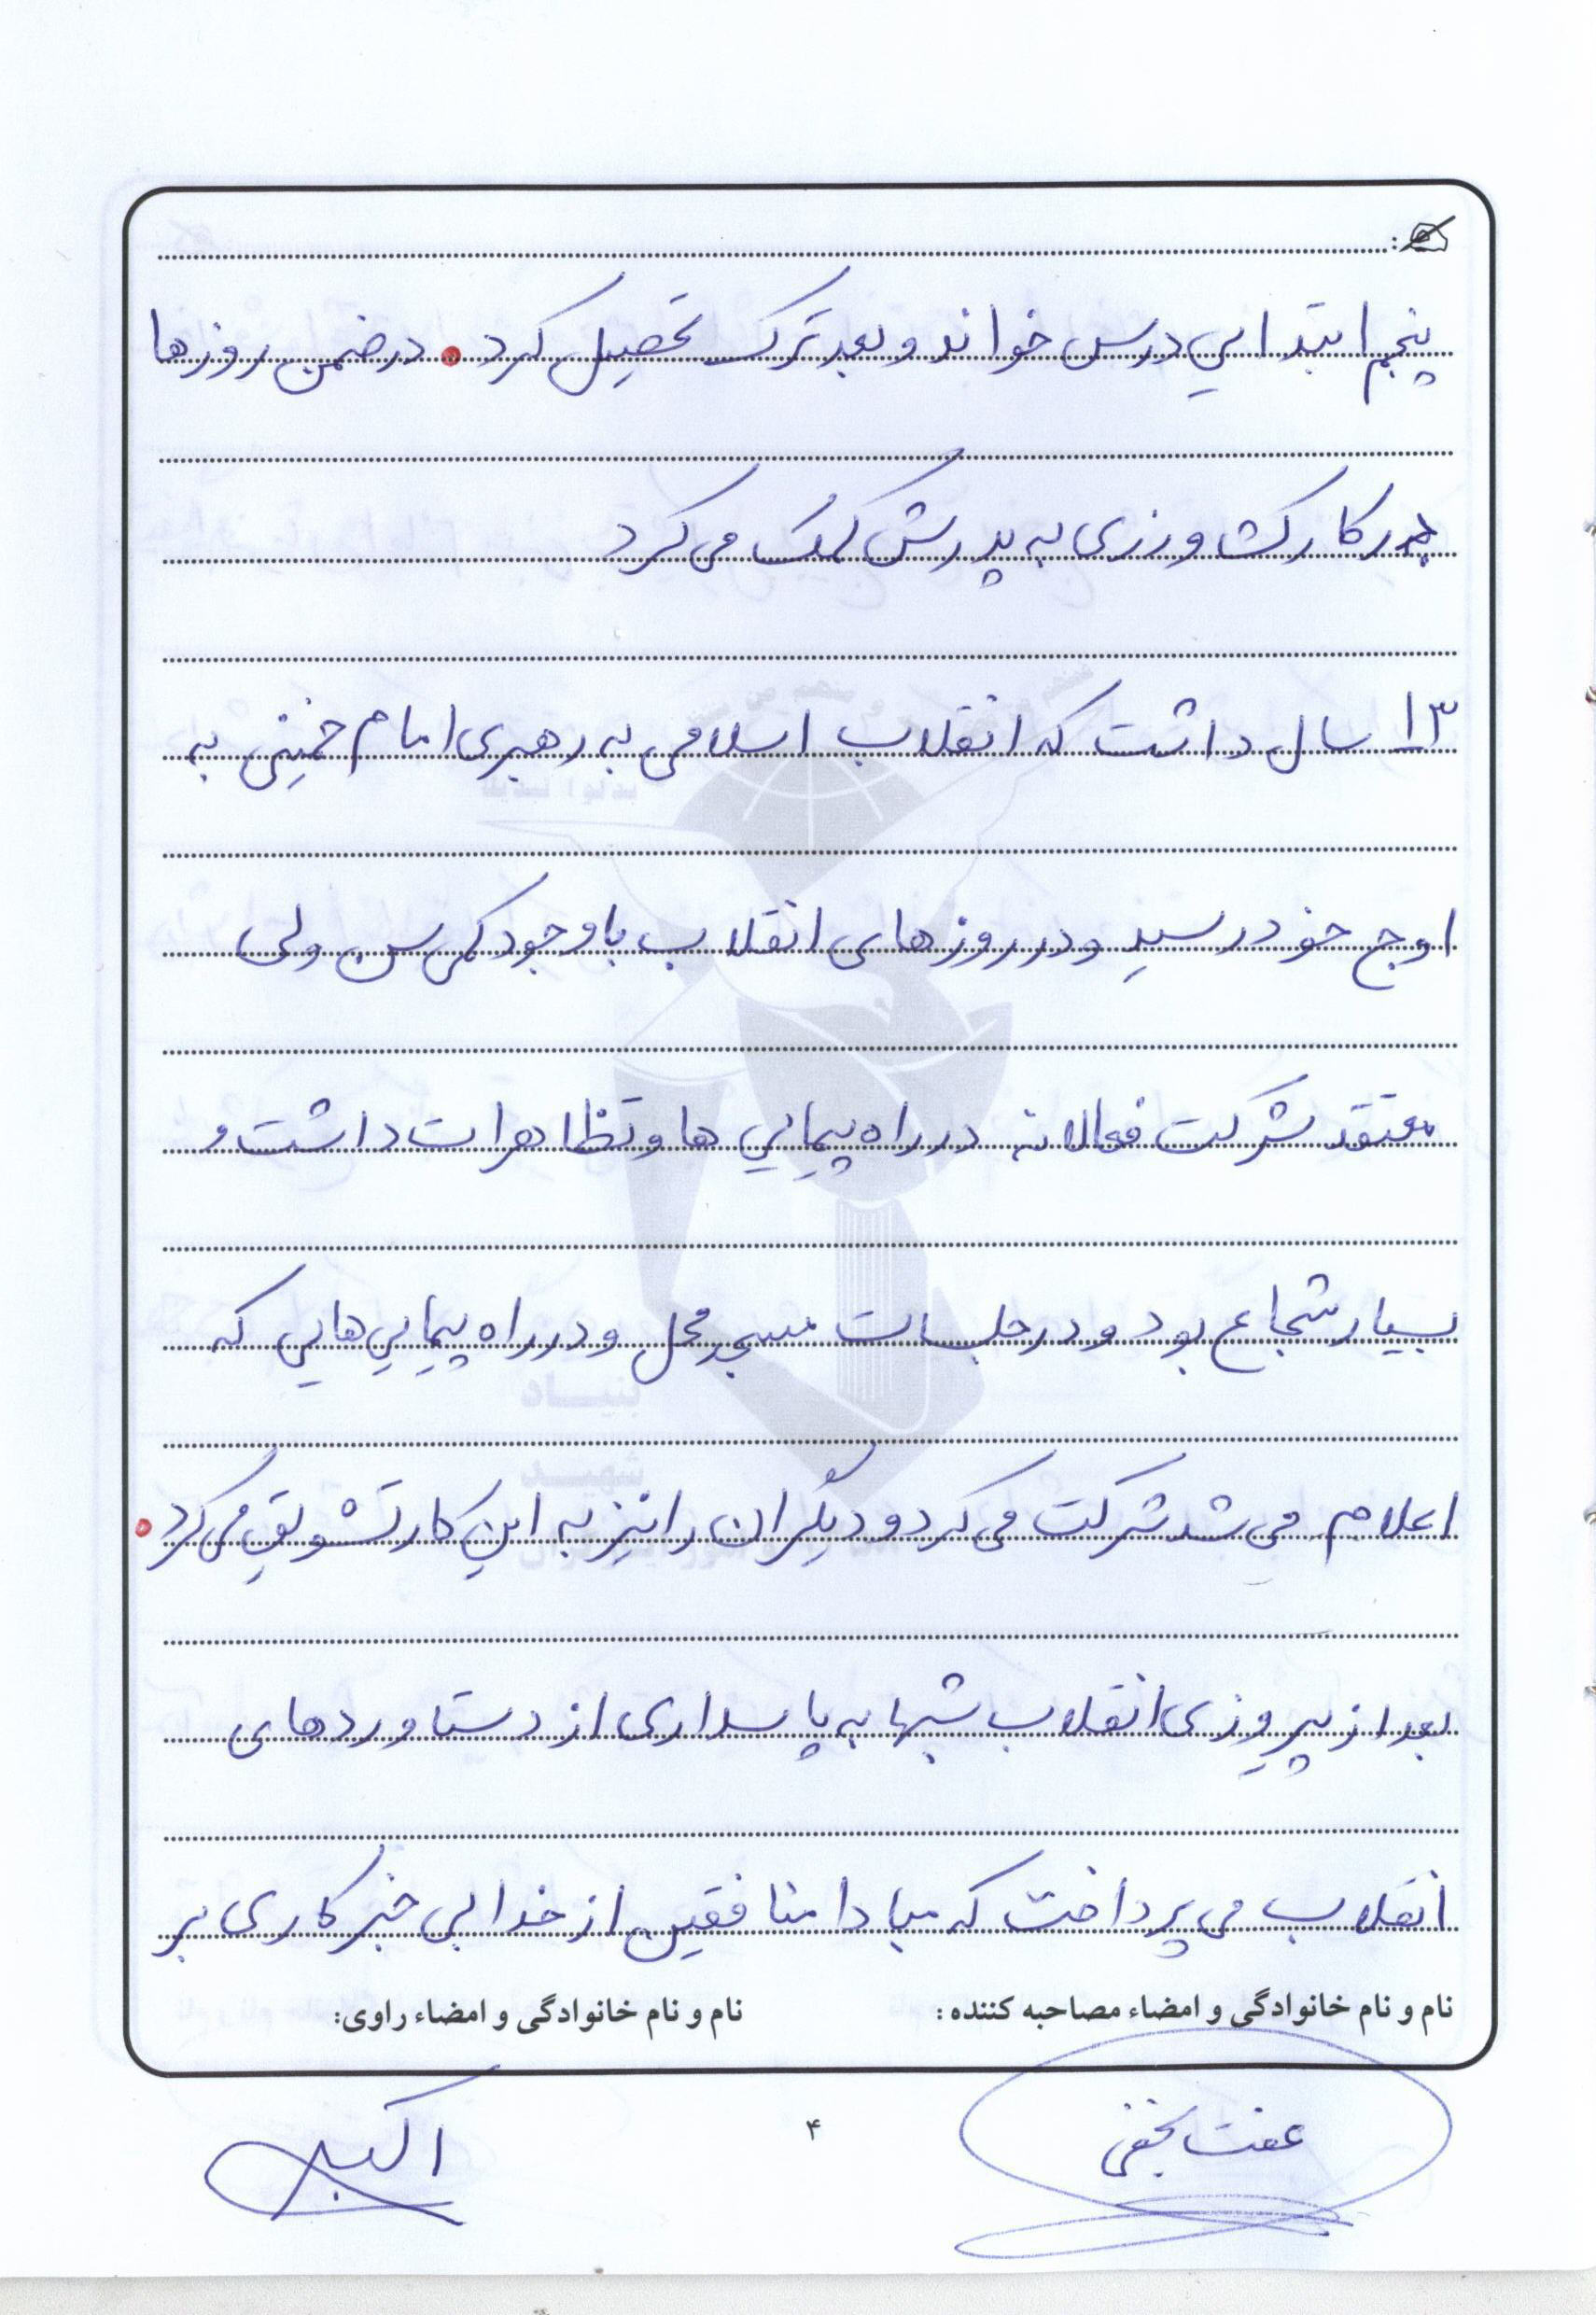 پنجم ابتدایی درس خواند و بعد ترک تحصیل کرد. در ضمن روزها
در کار کشاورزی به پدرش کمک می کرد
۱۳ سال داشت که انقلاب اسلامی به رهبری امام خمینی به
اوج خود رسید و در روزهای انقلاب با وجود کمی سن ولی
معتقد شرکت فعالانه در راه پیمایی ها و تظاهرات داشت و
بسیار شجاع بود و در جلسات مسجد محل و در راه پیمایی هایی که
اعلام می شد شرکت می کرد و دیگران را نیز به این کار تشویق می کرد.
بعد از پیروزی انقلاب شبها به پاسداری از دستاوردهای
انقلاب می پرداخت که مبادا منافقین از خدا بی خبر کاری بر
نام و نام خانوادگی و امضاء مصاحبه کننده: نام و نام خانوادگی و امضاء راوی:
عفت نجفی
۴
اکبر